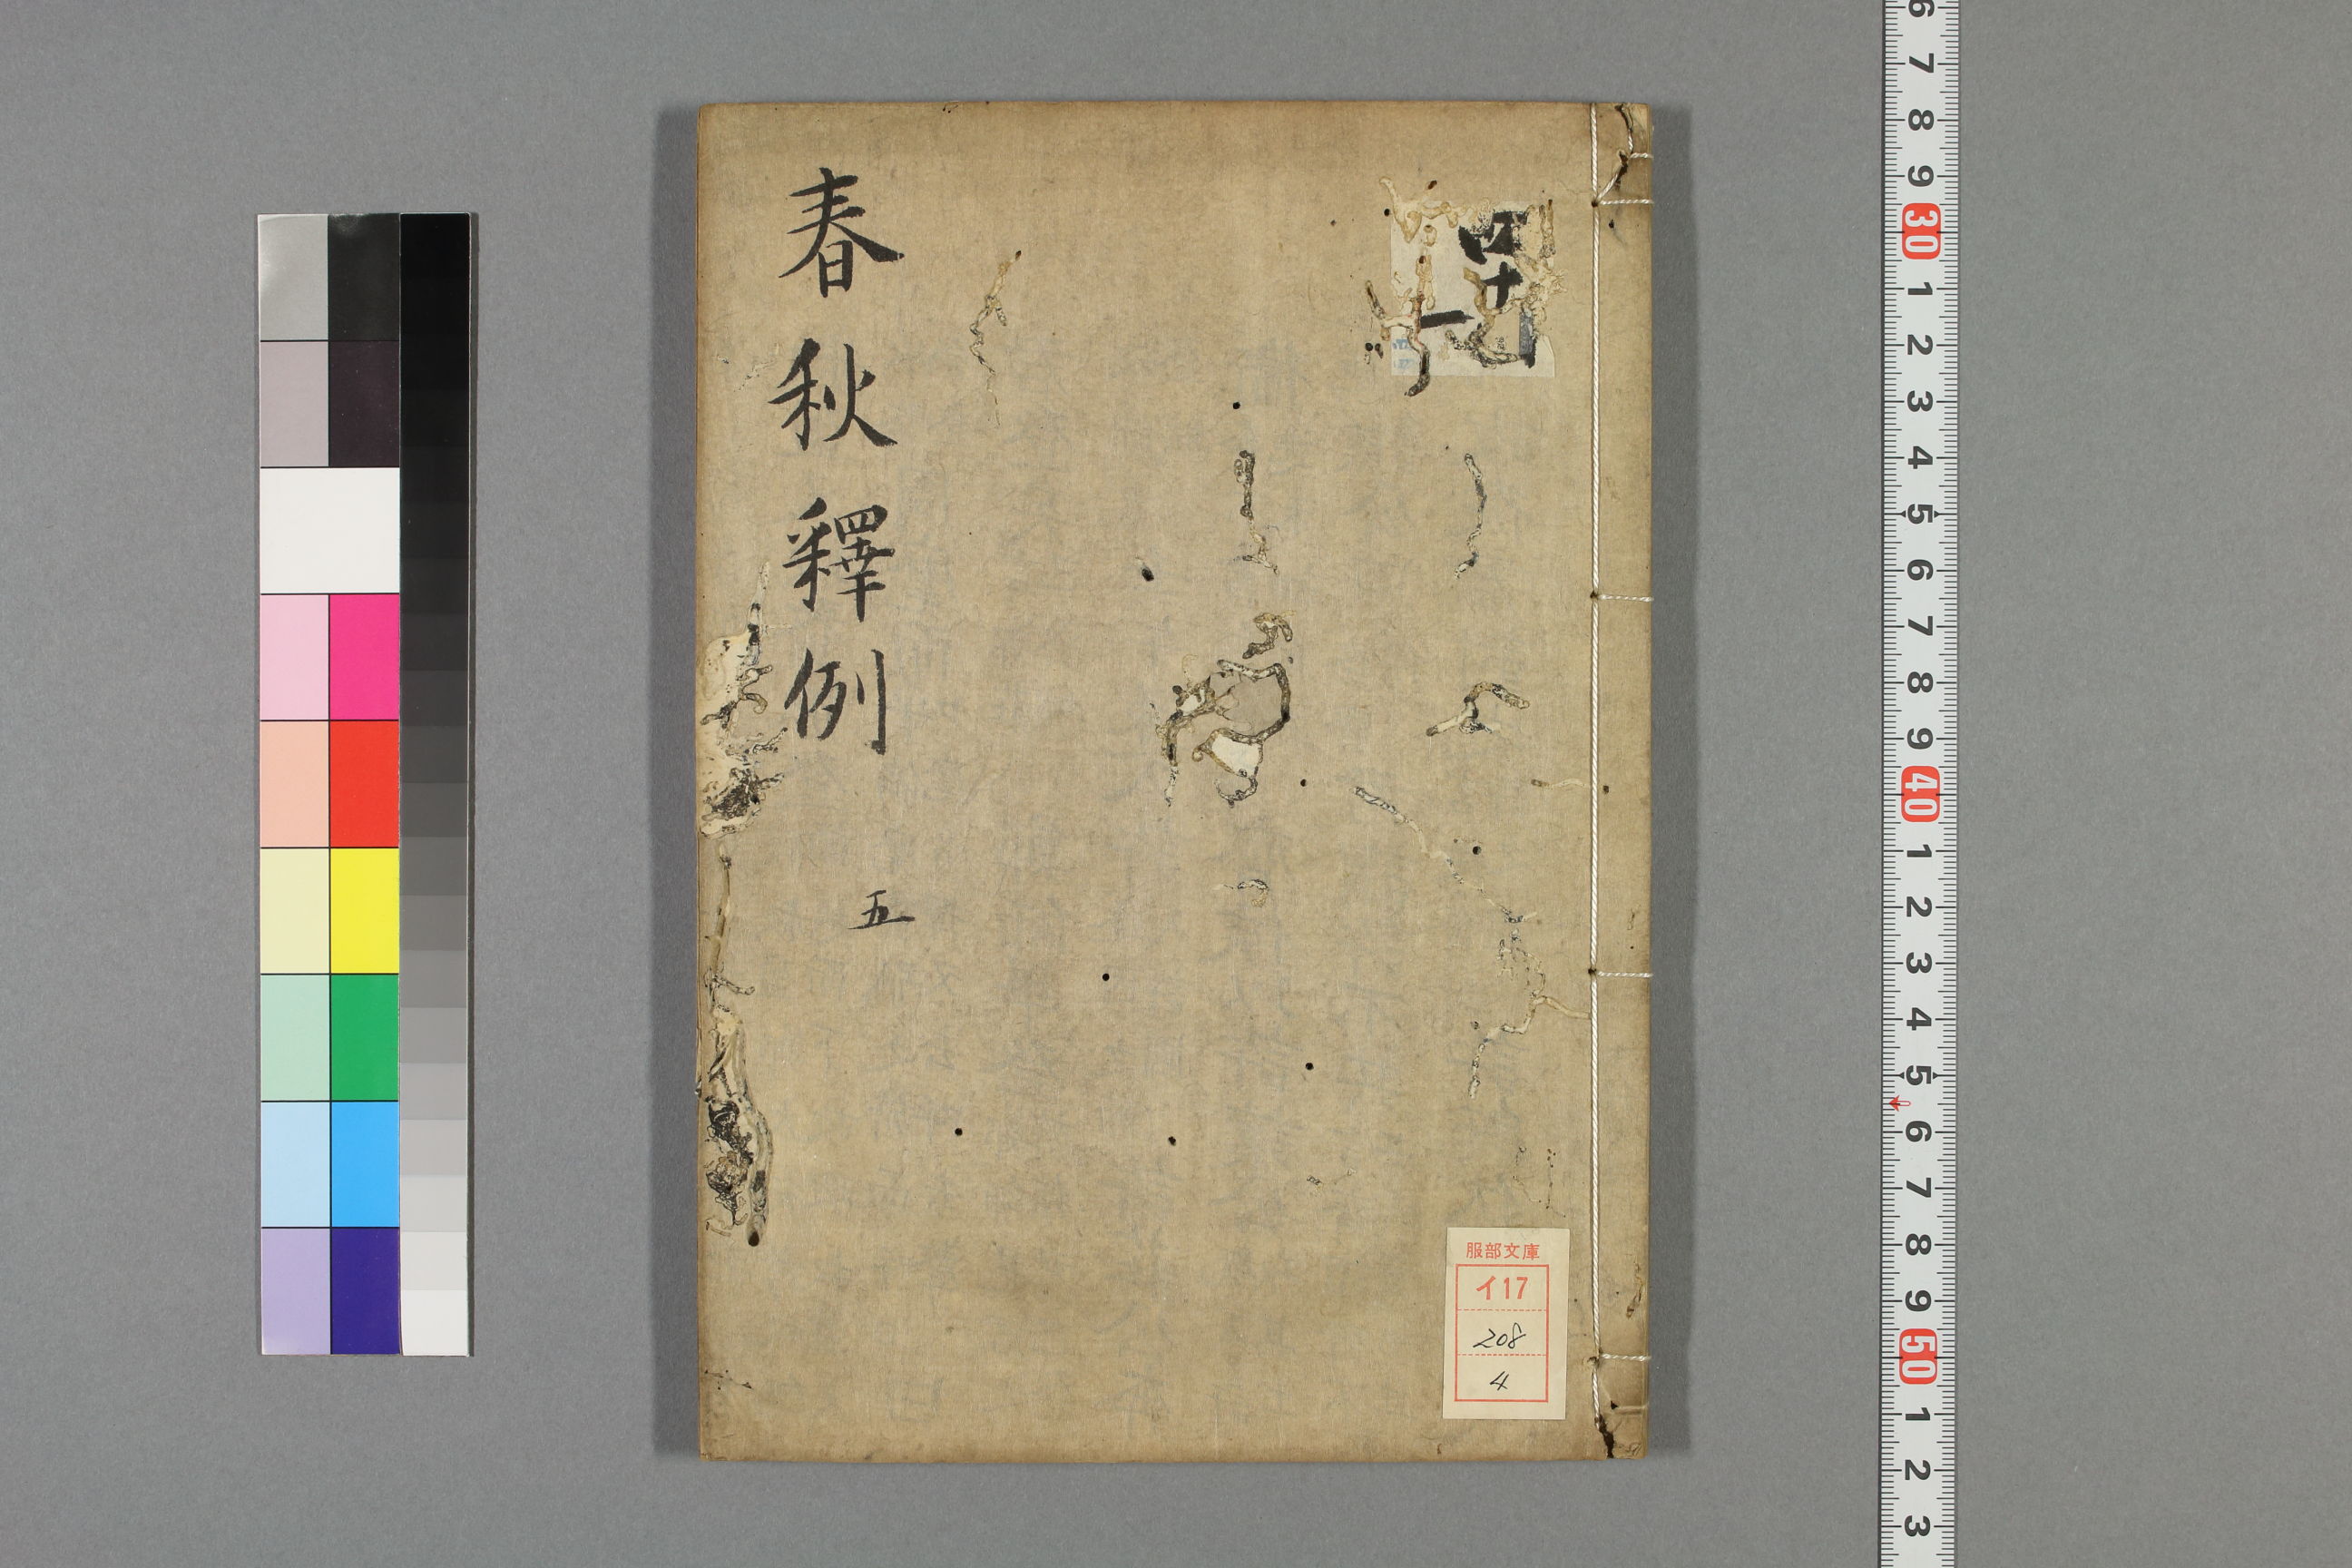 春秋釋例
五
四十
服部文庫
イ17
208
4
6
7
8
9
30
1
2
3
4
5
6
7
8
9
40
1
2
3
4
5
6
7
8
9
50
1
2
3